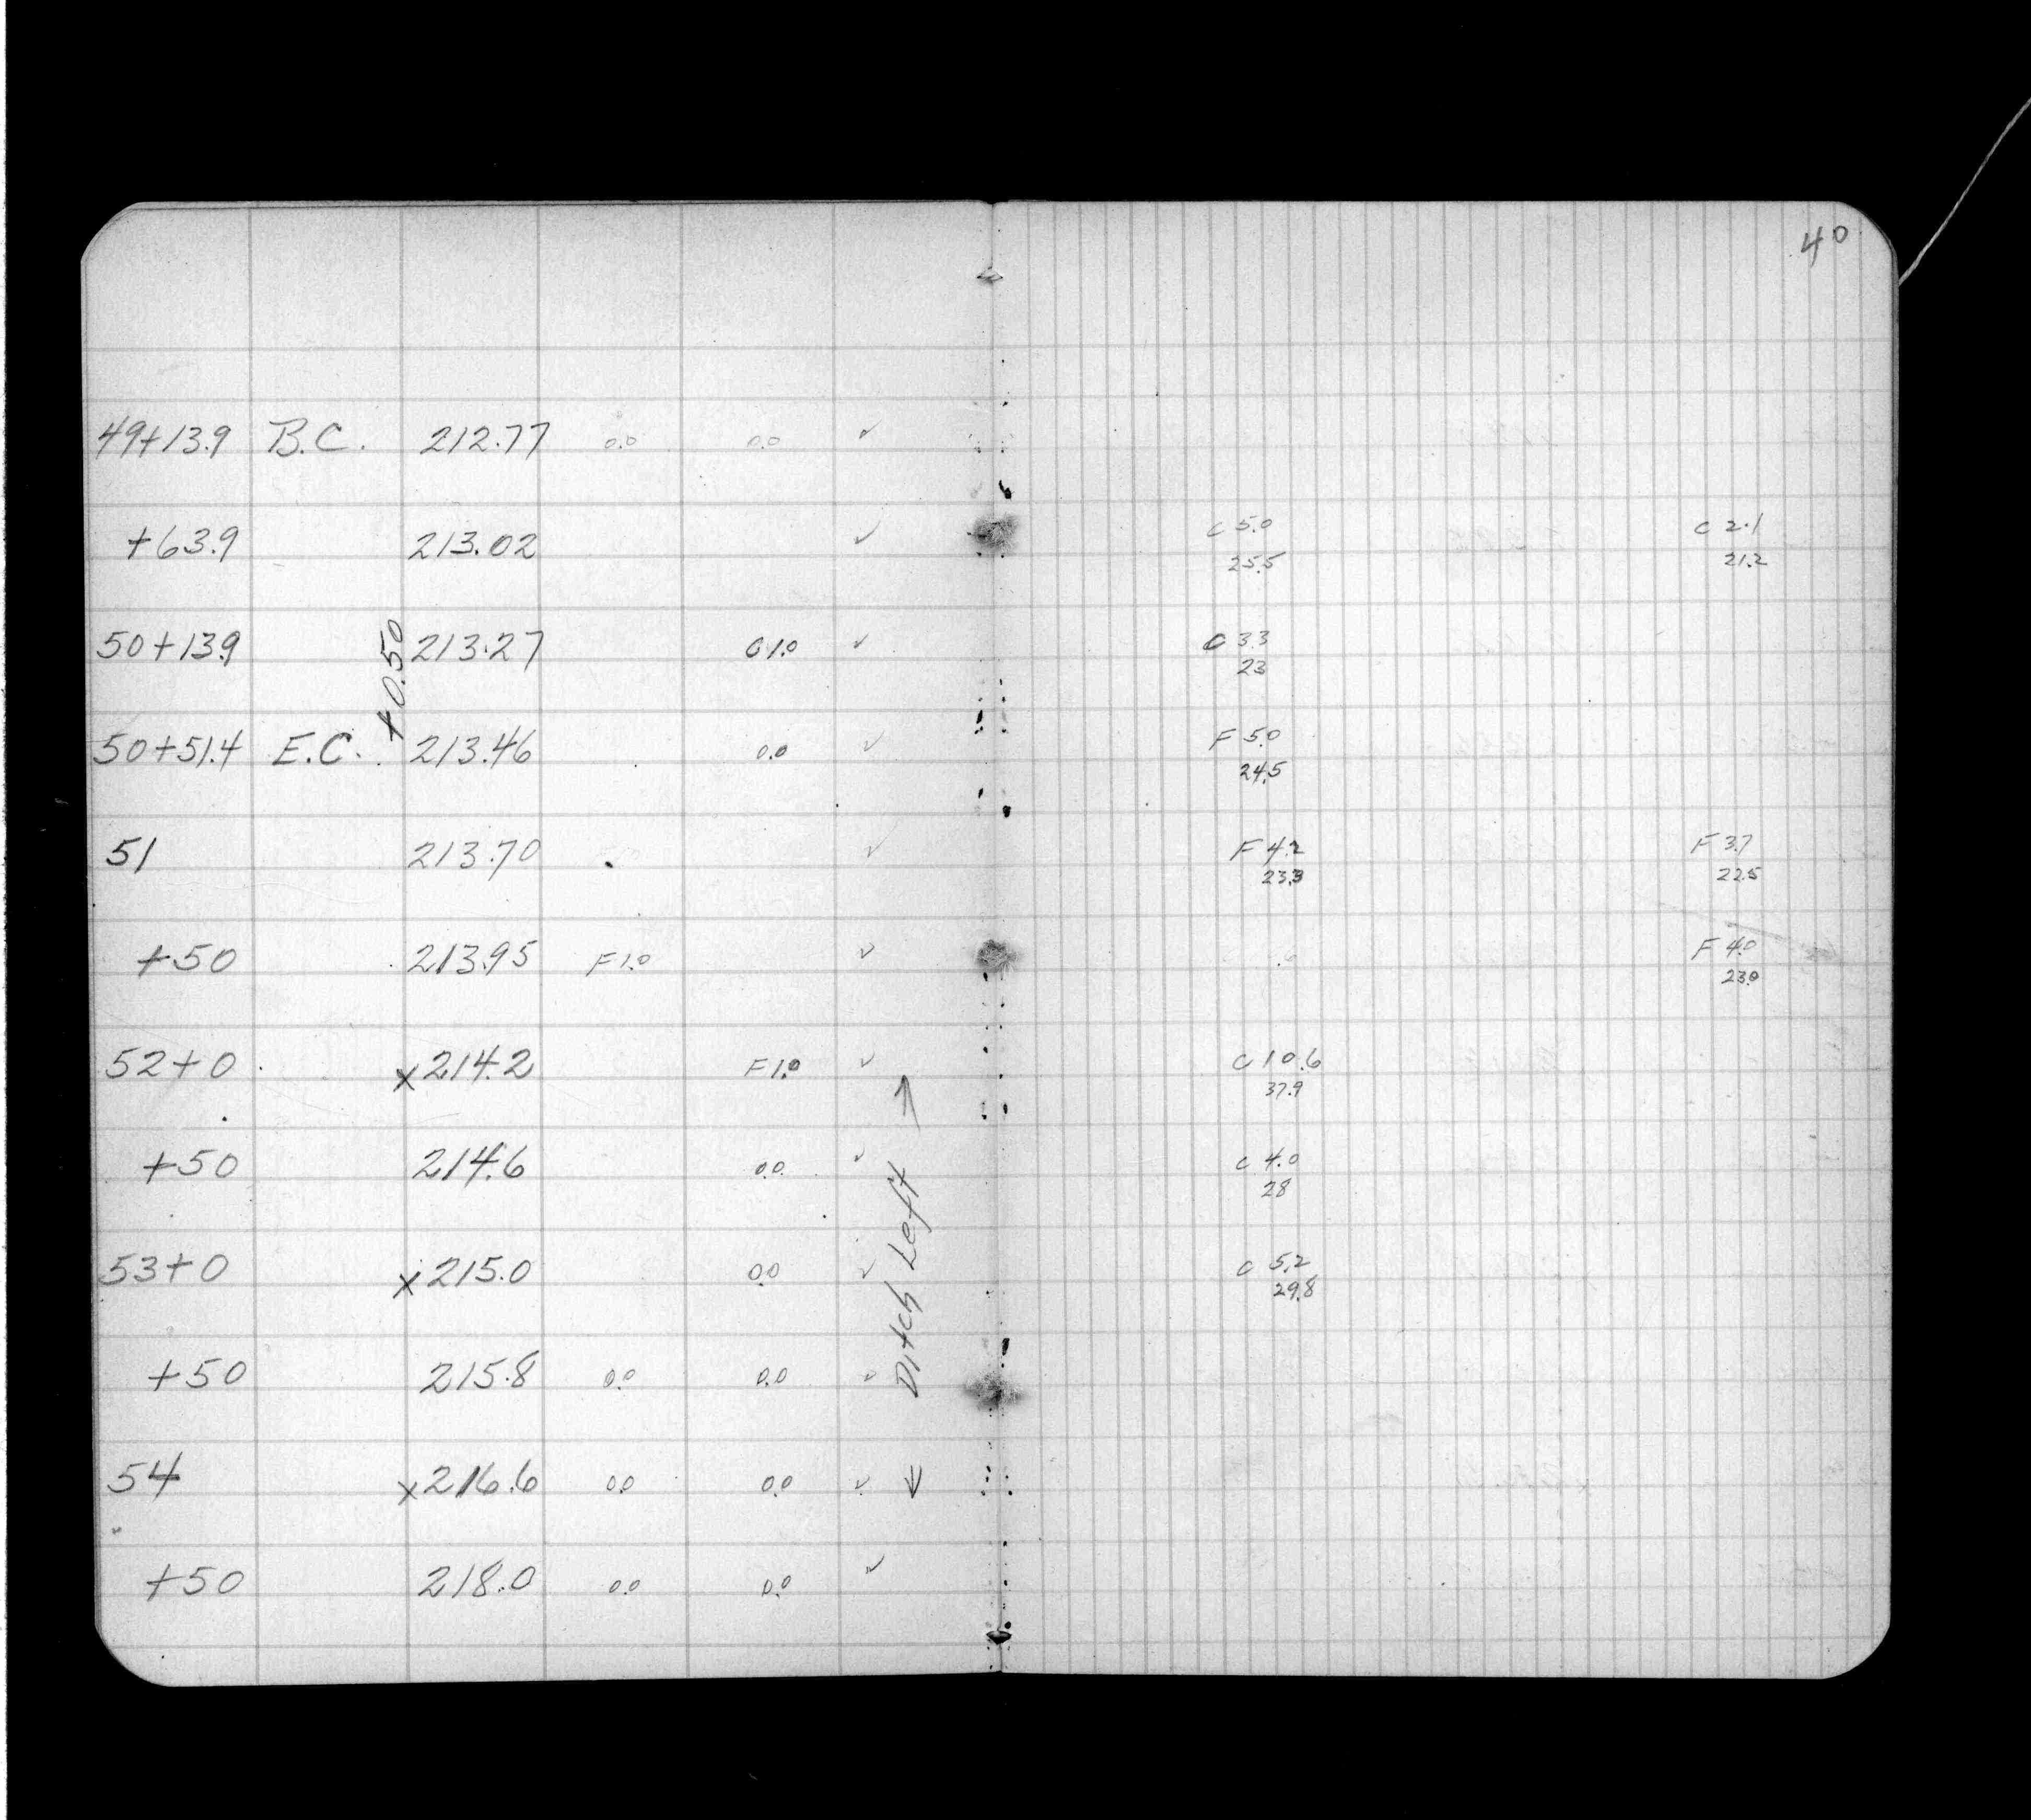 40
49+13.9 B.C. 212.77 0.0 0.0 ✓
+63.9 213.02 ✓ C 5.0 C 2.1
25.5 21.2
50+13.9 213.27 C 1.0 ✓ C 3.3
23
+0.50
50+51.4 E.C. 213.46 0.0 ✓ F 5.0
24.5
51 213.70 ✓ F 4.2 F 3.7
23.3 22.5
+50 213.95 F 1.0 ✓ F 4.0
23.0
52+0 x 214.2 F 1.0 ✓ C 10.6
37.9
+50 214.6 0.0 ✓ C 4.0
28
53+0 x 215.0 0.0 ✓ C 5.2
29.8
← Ditch Left →
+50 215.8 0.0 0.0 ✓
54 x 216.6 0.0 0.0 ✓
+50 218.0 0.0 0.0 ✓